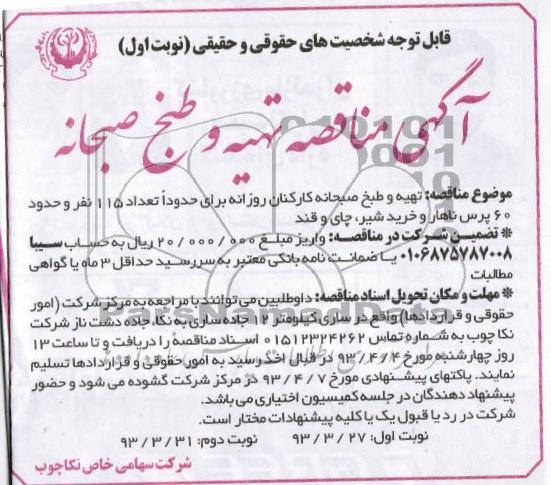 قابل توجه شخصیت های حقوقی و حقیقی (نوبت اول)
آگهی مناقصه تهیه و طبخ صبحانه
موضوع مناقصه: تهیه و طبخ صبحانه کارکنان روزانه برای حدوداً تعداد ۱۱۵ نفر و حدود
۶۰ پرس ناهار و خرید شیر، چای و قند
* تضمین شرکت در مناقصه: واریز مبلغ ۲۰/۰۰۰/۰۰۰ ریال به حساب سیبا
۰۱۰۶۸۷۵۷۸۷۰۰۸ یا ضمانت نامه بانکی معتبر به سررسید حداقل ۳ ماه یا گواهی
مطالبات
* مهلت و مکان تحویل اسناد مناقصه: داوطلبین می توانند با مراجعه به مرکز شرکت (امور
حقوقی و قراردادها) واقع در ساری کیلومتر ۱۲ جاده ساری به نکا، جاده دشت ناز شرکت
نکا چوب به شماره تماس ۰۱۵۱۲۳۲۴۲۶۲ اسناد مناقصه را دریافت و تا ساعت ۱۳
روز چهارشنبه مورخ ۹۳/۴/۴ در قبال اخذ رسید به امور حقوقی و قراردادها تسلیم
نمایند. پاکتهای پیشنهادی مورخ ۹۳/۴/۷ در مرکز شرکت گشوده می شود و حضور
پیشنهاد دهندگان در جلسه کمیسیون اختیاری می باشد.
شرکت در رد یا قبول یک یا کلیه پیشنهادات مختار است.
نوبت اول: ۹۳/۳/۲۷ نوبت دوم: ۹۳/۳/۳۱
شرکت سهامی خاص نکاچوب